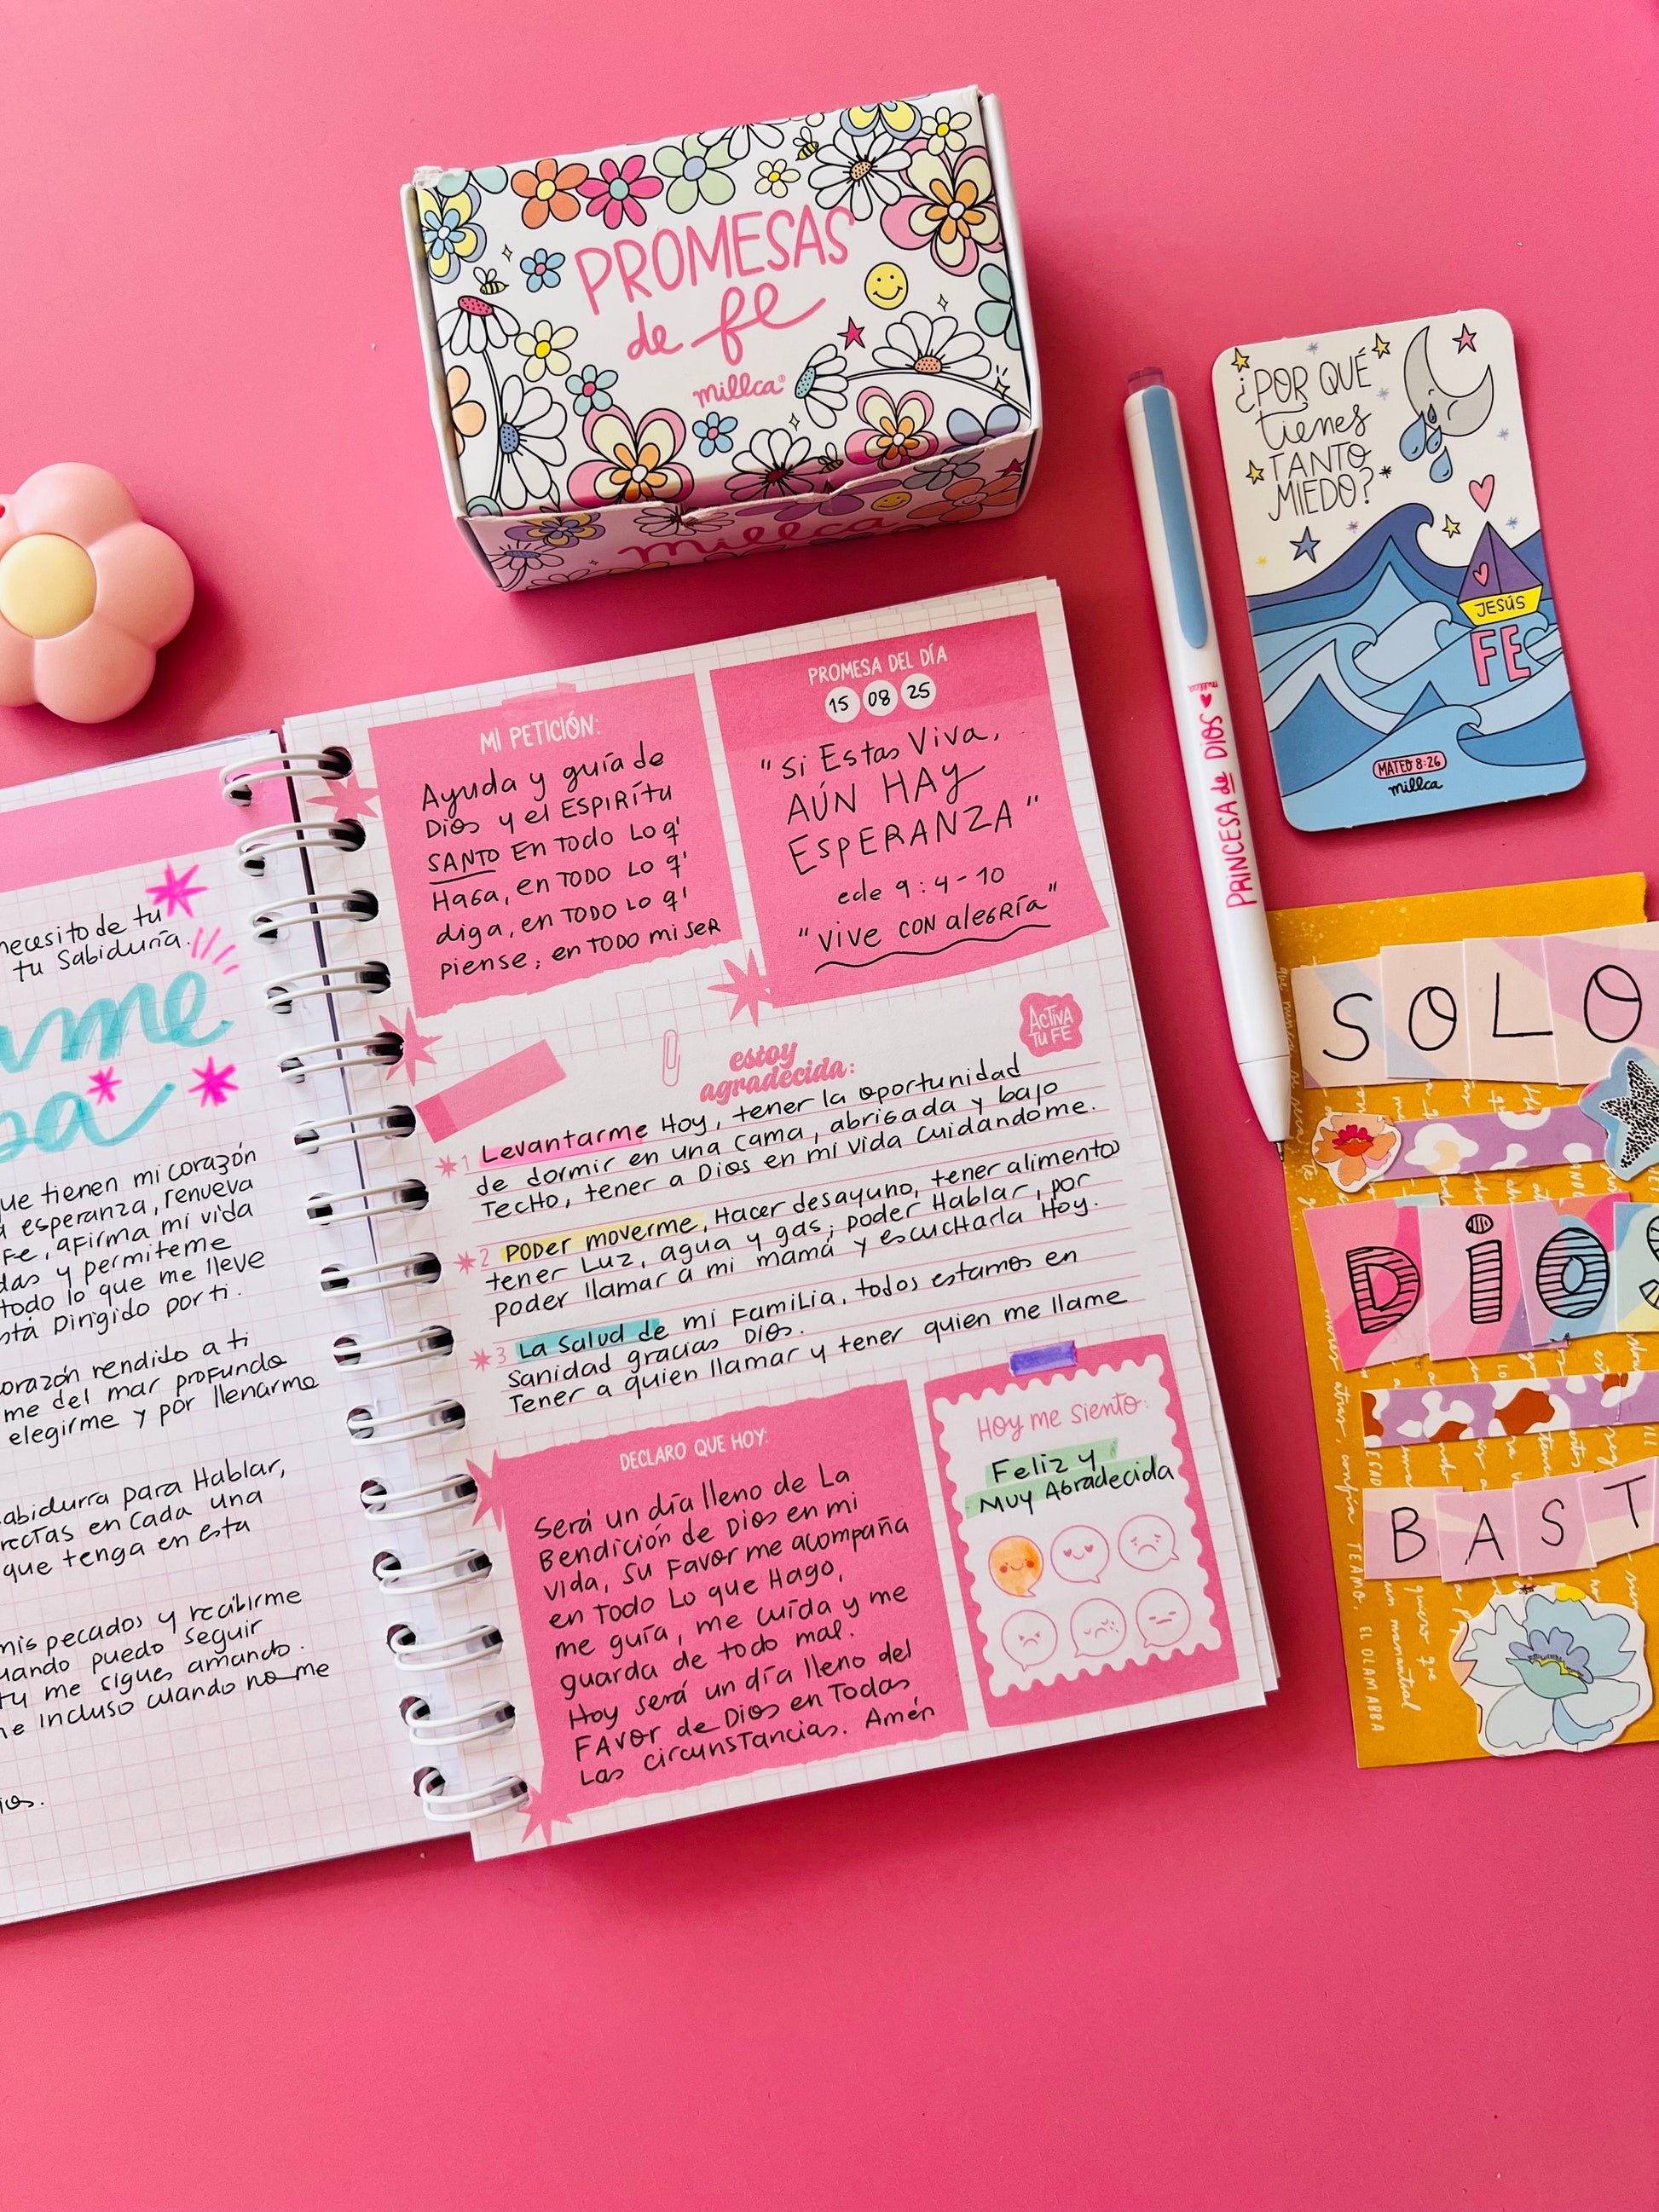 PROMESAS
de fe
millca
millca
¿POR QUÉ
tienes
TANTO
MIEDO?
JESÚS
FE
MATEO 8:26
millca
PRINCESA de DIOS
millca
necesito de tu
tu Sabiduría.
que tienen mi corazón
esperanza, renueva
Fe, afirma mi vida
y permiteme
todo lo que me lleve
Dirigido por ti.
rendido a ti
me del mar profundo
elegirme y por llenarme
para Hablar,
en cada una
que tenga en esta
mis pecados y recibirme
puedo seguir
tu me sigues amando.
incluso cuando no me
MI PETICIÓN:
Ayuda y guía de
Dios y el ESPIRÍtu
SANTO En Todo Lo q'
Haga, en TODO Lo q'
diga, en TODO Lo q'
piense, en TODO mi SER
PROMESA DEL DÍA
15 08 25
"Si Estas Viva,
AÚN HAY
ESPERANZA"
ecle 9:4-10
"VIVE CON alegRía"
ACTIVA
TU FE
estoy
agradecida:
1 Levantarme Hoy, tener la oportunidad
de dormir en una cama, abrigada y bajo
TecHo, tener a Dios en mi vida cuidándome.
2 PODer moverme, Hacer desayuno, tener alimento
tener Luz, agua y gas, poder Hablar, por
poder llamar a mi mamá y escucHarla Hoy.
3 La Salud de mi Familia, todos estamos en
Sanidad gracias Dios.
Tener a quien llamar y tener quien me llame
DECLARO QUE HOY:
Será un día lleno de La
Bendición de Dios en mi
vida, Su Favor me acompaña
en Todo Lo que Hago,
me guía, me cuída y me
guarda de todo mal.
Hoy será un día lleno del
FAvor de Dios en Todas
Las circunsTancias. Amén
Hoy me siento:
Feliz y
Muy Agradecida
SOLO
DiOS
BAST
TEAMO, EL OLAM ABBA